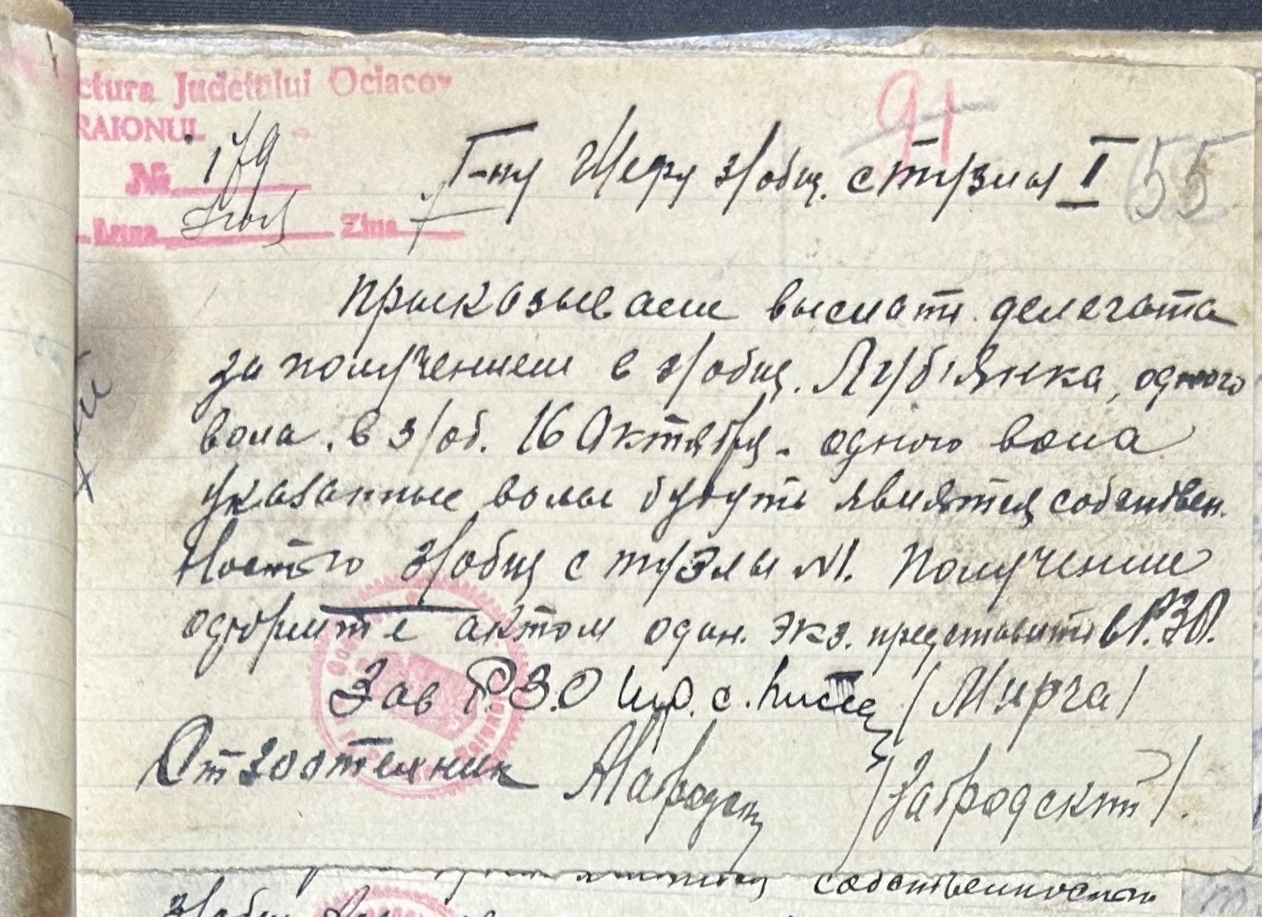 ctura Judetului Ociacov
RAIONUL
№ 179
Luna Ziua 7
91
55
Г-ну Шефу з/общ. с тузлы I
Приказываем выслать делегата
за получением в з/общ. Лубянка, одного
вола, в з/об. 16 Октября - одного вола
указанные волы будуть являтся собствен.
ностю з/общ с тузлы №1. Получение
одформите актом один. экз. представить в Р.З.О.
Зав Р.З.О /Мирча/
Ст зоотехник /Забродский/
собственностью
з/общ